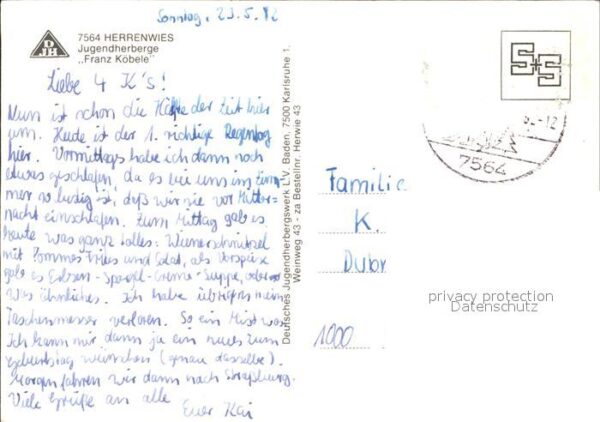 Sonntag, 23.5.82
DJH
7564 HERRENWIES
Jugendherberge
„Franz Köbele"
Liebe 4 K's!
Nun ist schon die Hälfte der Zeit hier
um. Heute ist der 1. richtige Regentag
hier. Vormittags habe ich dann noch
etwas geschlafen, da es bei uns im Zim-
mer so lustig ist, daß wir nie vor Mitter-
nacht einschlafen. Zum Mittag gab es
heute was ganz tolles: Wienerschnitzel
mit Pommes Frites und Salat, als Vorspeise
gab es Erbsen-Spargel-Creme-Suppe, oder so
was Ähnliches. Ich habe übrigens mein
Taschenmesser verloren. So ein Mist was
Ich kann mir dann ja ein neues zum
Geburtstag wünschen (genau dasselbe).
Morgen fahren wir dann nach Straßburg.
Viele Grüße an alle
Euer Kai
Deutsches Jugendherbergswerk L.V. Baden, 7500 Karlsruhe 1,
Weinweg 43 - za Bestellnr. Herwie 43
S+S
-12
7564
Familie
K.
1000
privacy protection
Datenschutz